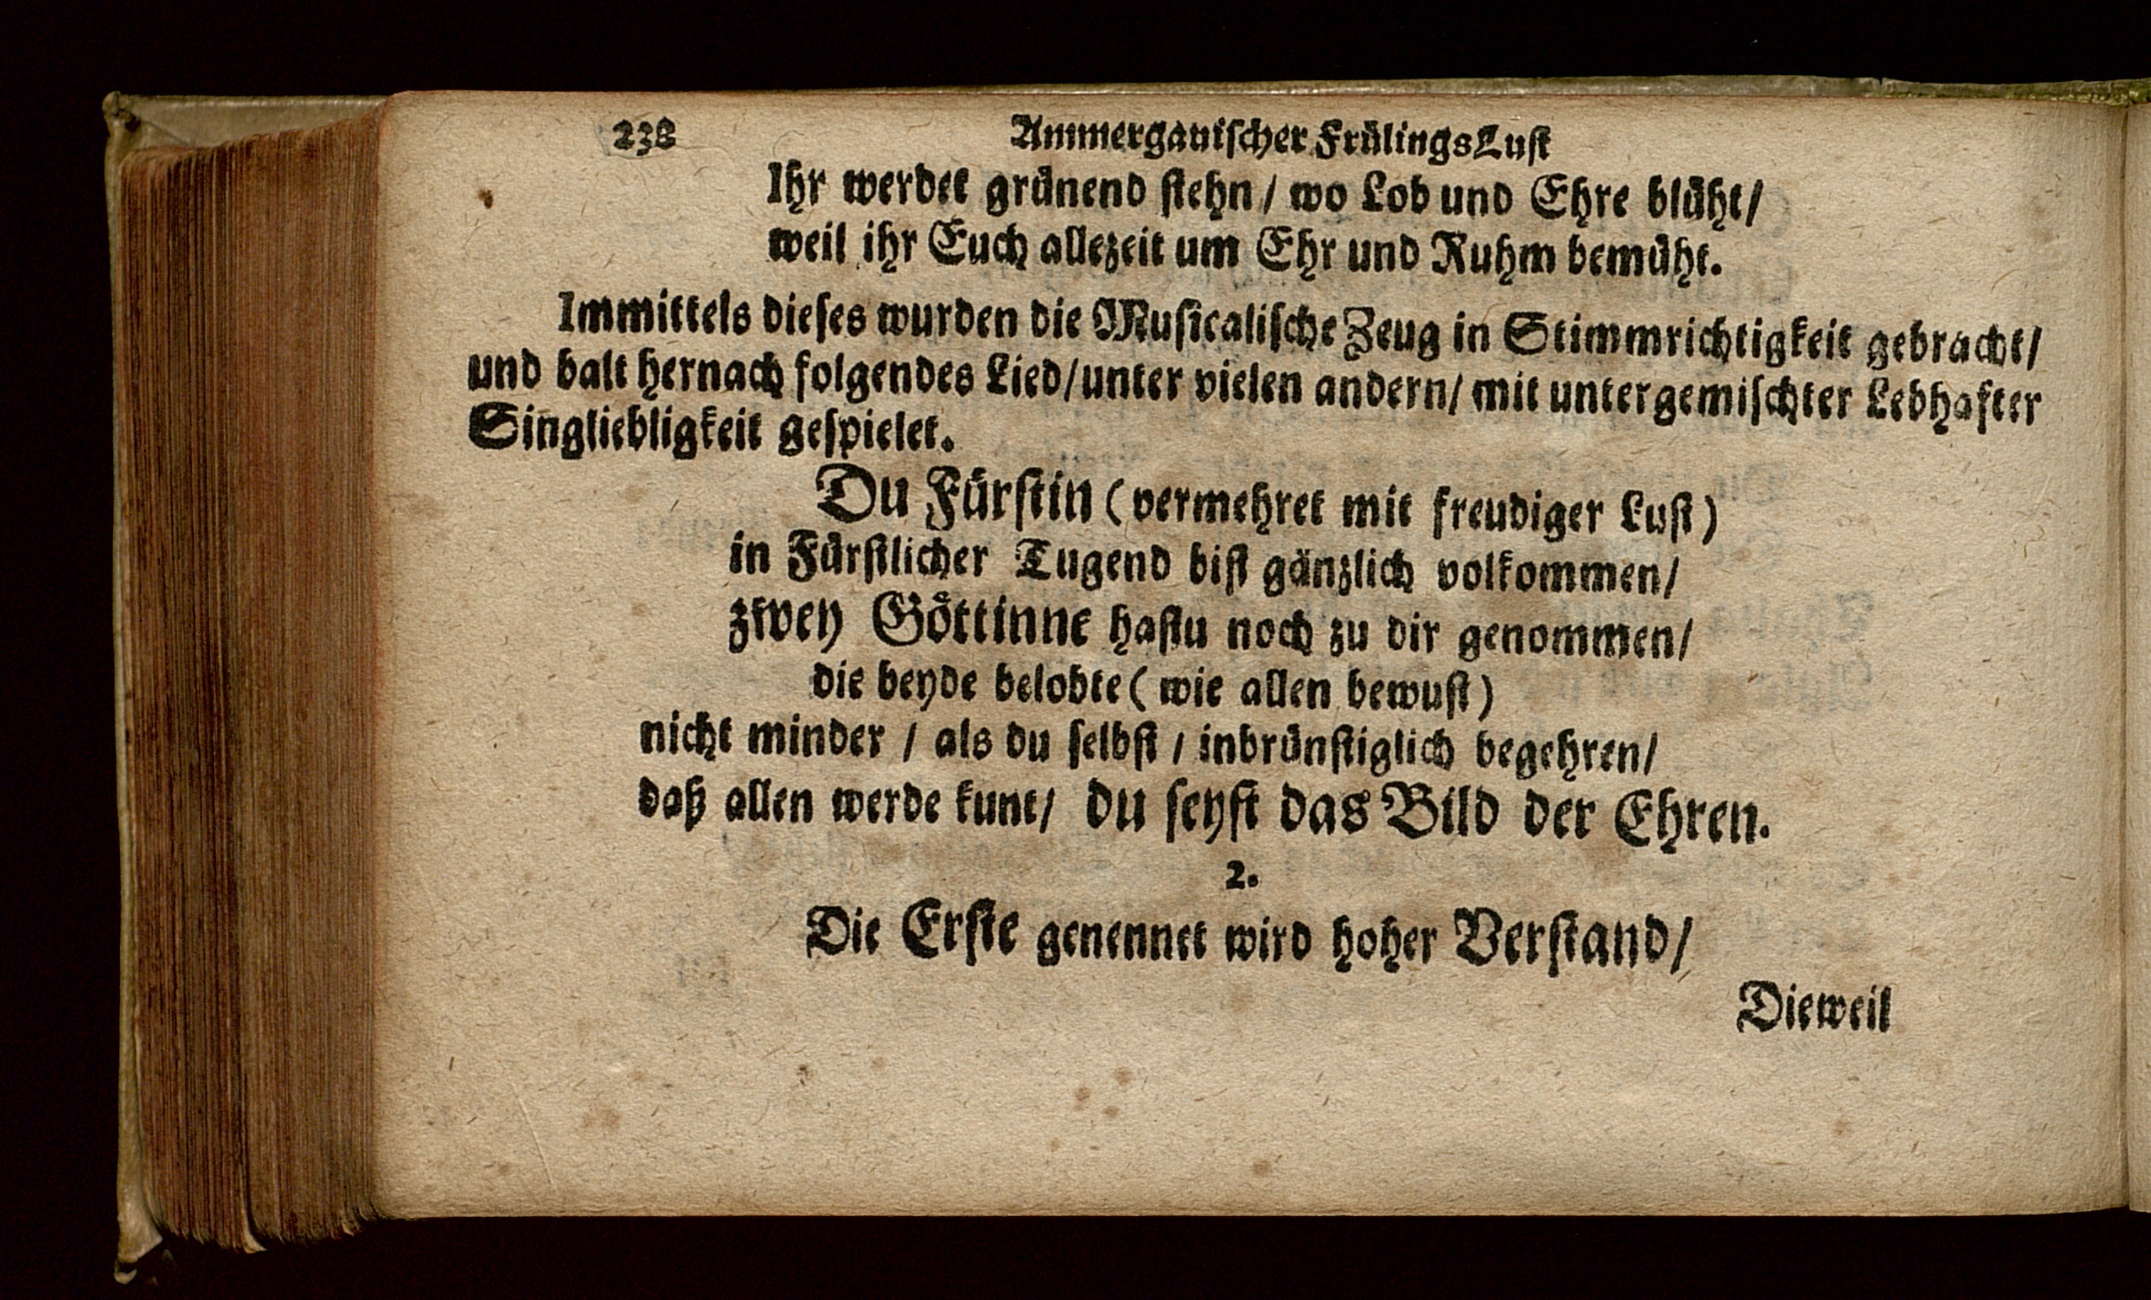 238 Ammergauiſcher FrülingsLuſt
Ihr werdet grünend ſtehn / wo Lob und Ehre blüht /
weil ihr Euch allezeit um Ehr und Ruhm bemüht.
Immittels dieſes wurden die Muſicaliſche Zeug in Stimmrichtigkeit gebracht /
und balt hernach folgendes Lied / unter vielen andern / mit untergemiſchter Lebhafter
Singliebligkeit geſpielet.
Du Fürſtin ( vermehret mit freudiger Luſt )
in Fürſtlicher Tugend biſt gänzlich volkommen /
zwey Göttinne haſtu noch zu dir genommen /
die beyde belobte ( wie allen bewuſt )
nicht minder / als du ſelbſt / inbrünſtiglich begehren /
daß allen werde kunt / du ſeyſt das Bild der Ehren.
2.
Die Erſte genennet wird hoher Verſtand /
Dieweil